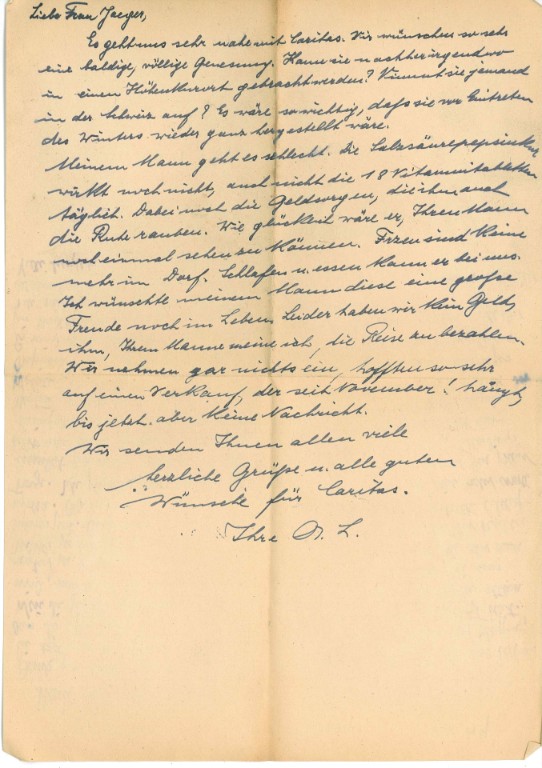 Liebe Frau Jaeger,
Es geht uns sehr nahe mit Caritas. Wir wünschen so sehr
eine baldige, völlige Genesung. Kann sie nachher irgendwo
in einen Höhenkurort gebracht werden? Nimmt sie jemand
in der Schweiz auf? Es wäre so wichtig, dass sie vor Eintreten
des Winters wieder ganz hergestellt wäre.
Meinem Mann geht es schlecht. Die Salzsäurepepsinkur
wirkt noch nicht, auch nicht die 18 Vitamintabletten
täglich. Dabei noch die Geldsorgen, die ihm auch
die Ruhe rauben. Wie glücklich wäre er, Ihren Mann
noch einmal sehen zu können. Fizen sind keine
mehr im Dorf. Schlafen u. essen kann er bei uns.
Ich wünschte meinem Mann diese eine grosse
Freude noch im Leben. Leider haben wir kein Geld,
ihm, Ihrem Manne meine ich, die Reise zu bezahlen.
Wir nehmen gar nichts ein, hofften so sehr
auf einen Verkauf, der seit November! hängt,
bis jetzt aber keine Nachricht.
Wir senden Ihnen allen viele
herzliche Grüße u. alle guten
Wünsche für Caritas.
Ihre N. L.